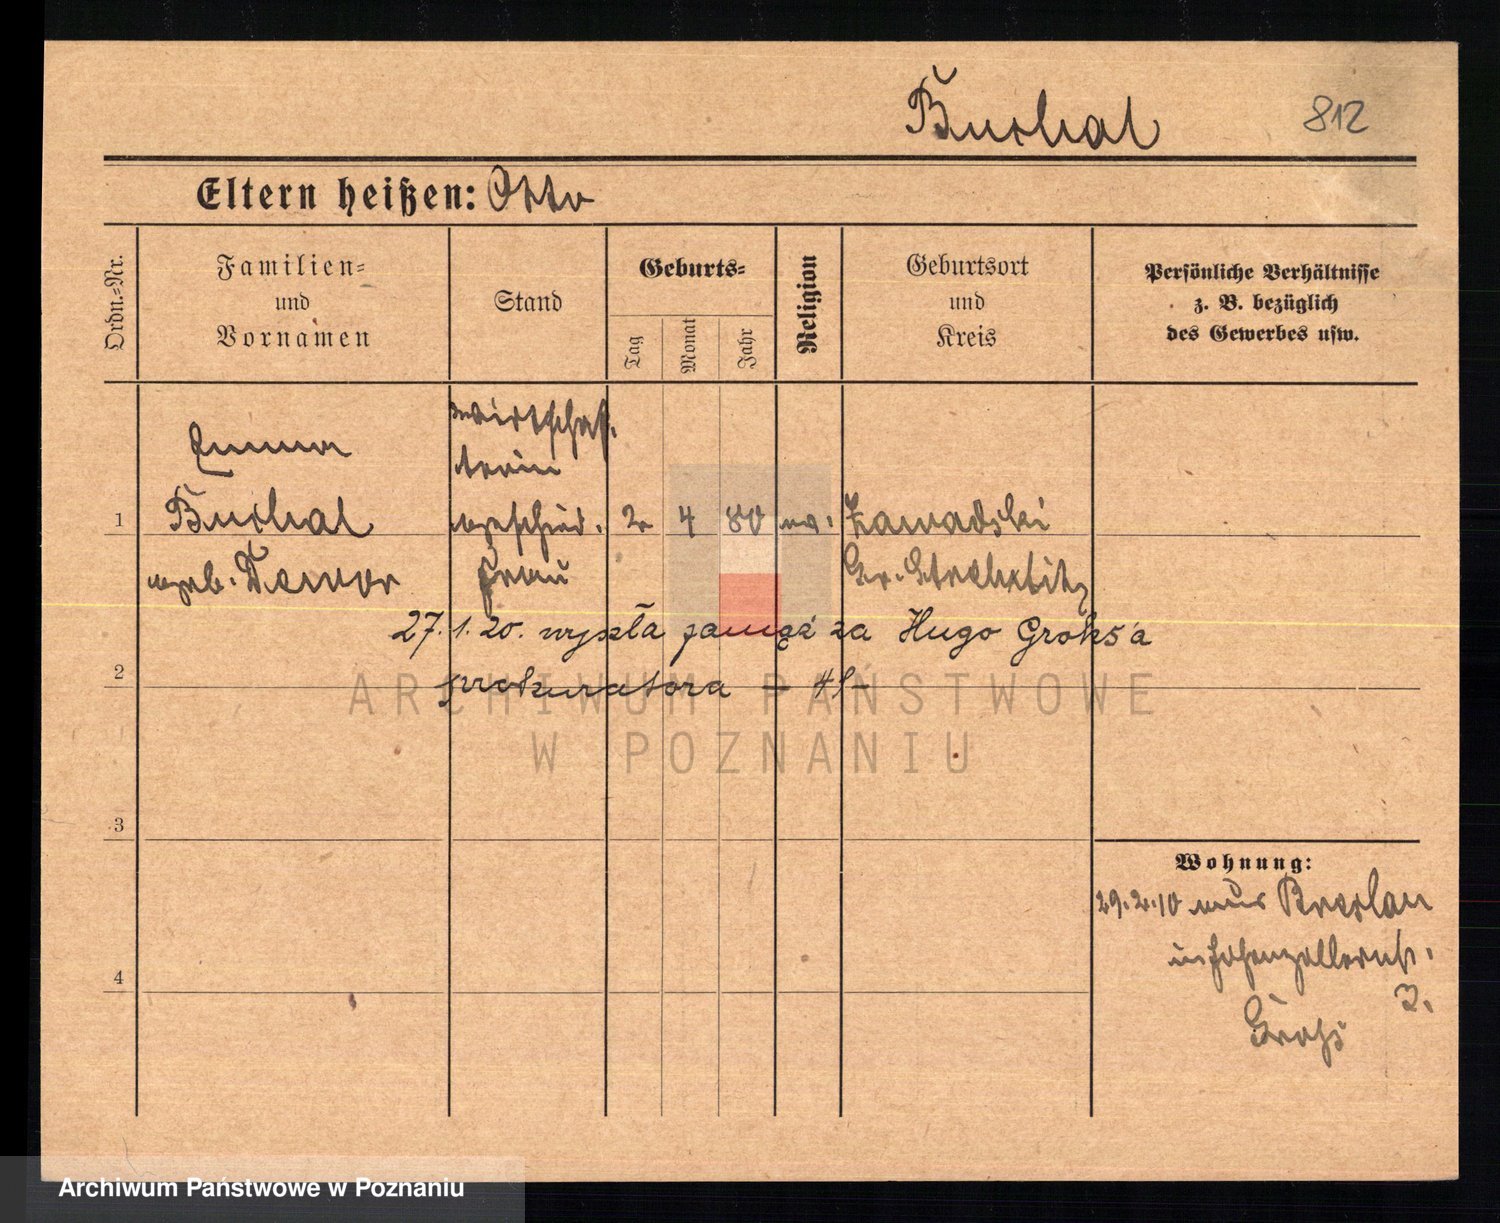 Buchal
812
Eltern heißen: Otto
Ordn.-Nr.
Familien-
und
Vornamen
Stand
Geburts-
Tag
Monat
Jahr
Religion
Geburtsort
und
Kreis
Persönliche Verhältnisse
z. B. bezüglich
des Gewerbes usw.
Emma
Buchal
geb.
Wirtschaf-
terin
geschied.
Frau
1
2 4 80 ev. Zawadzki
Gr. Strehlitz
27.1.20. wyszła zamąż za Hugo Groks'a
2
prokuratora
3
4
Wohnung:
29.2.10 aus Breslau
in Hohenzollernstr.
2.
ARCHIWUM PAŃSTWOWE
W POZNANIU
Archiwum Państwowe w Poznaniu